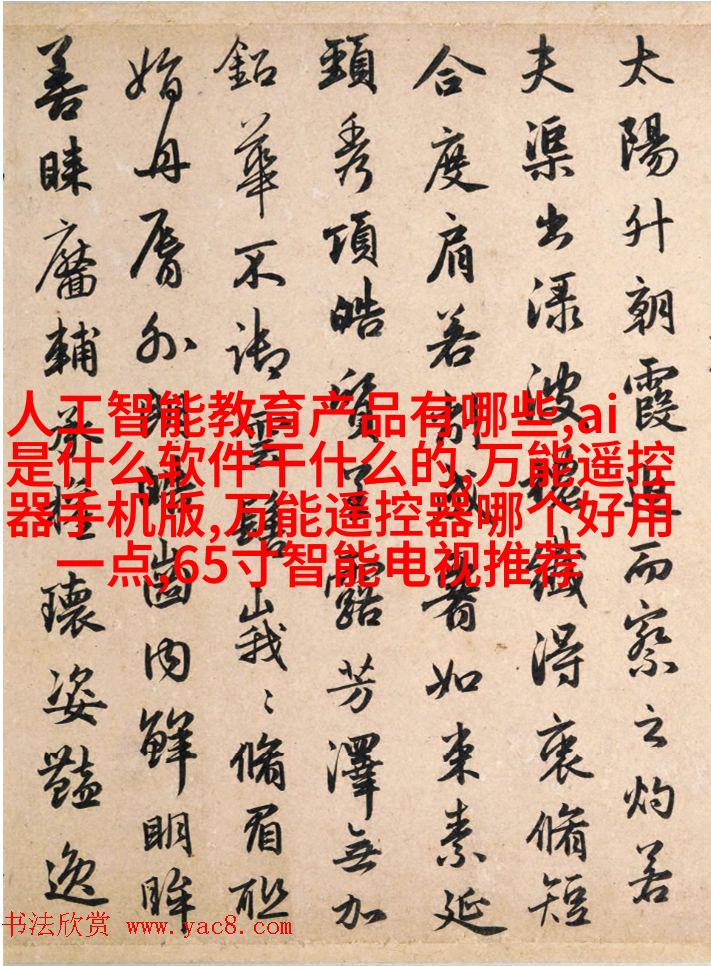 太陽升朝霞迫而察之灼若
夫渠出渌波穠纖得衷脩短
合度肩若削成如束素延
頸秀項皓質呈露芳澤無加
鉛華不御雲髻峩〻脩眉聯
娟丹脣外朗皓齒内鮮明眸
善睞靨輔承權瓌姿豔逸
人工智能教育产品有哪些,ai
是什么软件干什么的,万能遥控
器手机版,万能遥控器哪个好用
一点,65寸智能电视推荐
书法欣赏 www.yac8.com